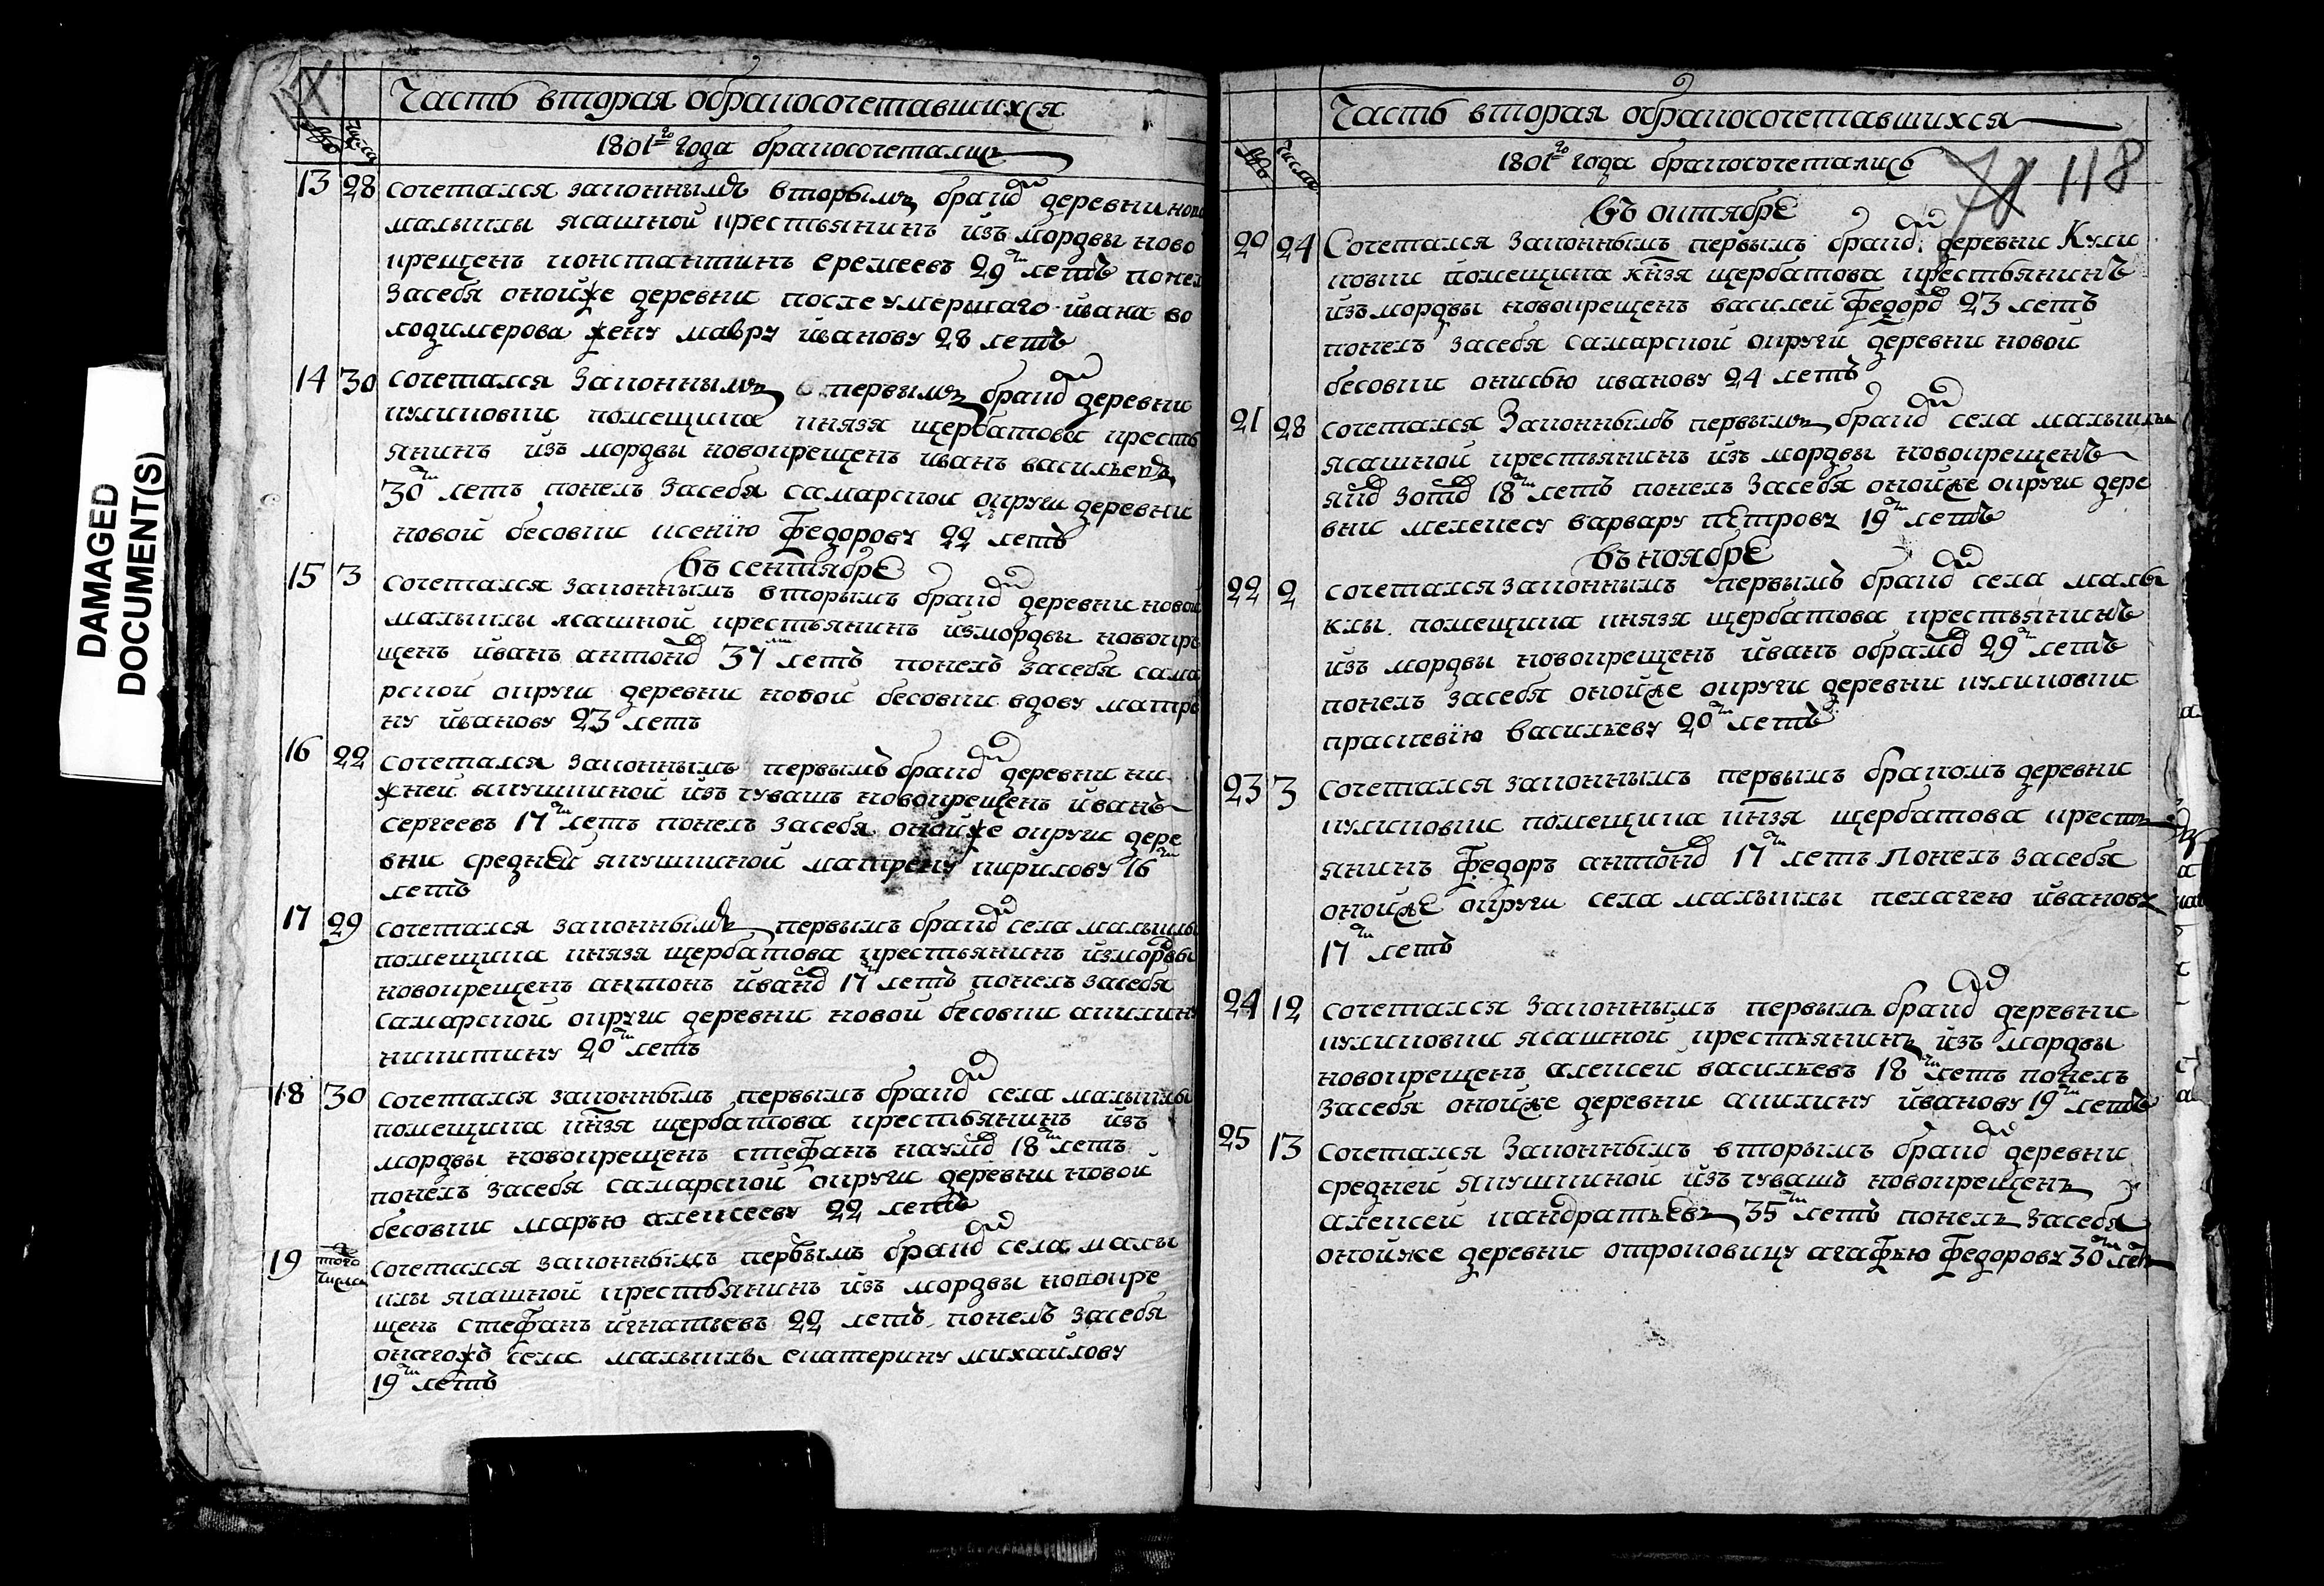 DAMAGED
DOCUMENT(S)
Часть вторая обракосочетавшихся
№
числа
1801го года бракосочетались
13 28 сочетался законнымъ вторымъ бракомъ деревни ново
малыклы ясашной крестьянинъ изъ мордвы ново
крещенъ константинъ еремеевъ 29ти летъ понел
засебя онойже деревни после умершаго ивана во
лодимерова жену мавру иванову 28 летъ
14 30 сочетался законнымъ первымъ бракомъ деревни
куликовки помещика князя щербатова кресть
янинъ изъ мордвы новокрещенъ иванъ васильевъ
30ти летъ понелъ засебя самарской округи деревни
новой бесовки ксенїю федорову 22 летъ
въ сентябре
15 3 сочетался законнымъ вторымъ бракомъ деревни новой
малыклы ясашной крестьянинъ измордвы новокре
щенъ иванъ антоновъ 37ми летъ понелъ засебя сама
рской округи деревни новой бесовки вдову матре
ну иванову 23 летъ
16 22 сочетался законнымъ первымъ бракомъ деревни ни
жней якушкиной изъ чувашъ новокрещенъ иванъ
сергеевъ 17ти летъ понелъ засебя онойже округи дере
вни средней якушкиной матрену кирилову 16ти
летъ
17 29 сочетался законнымъ первымъ бракомъ села малыклы
помещика князя щербатова крестьянинъ измордвы
новокрещенъ антонъ ивановъ 17ти летъ понелъ засебя
самарской округи деревни новой бесовки акилину
никитину 20ти летъ
18 30 сочетался законнымъ первымъ бракомъ села малыклы
помещика кнзя щербатова крестьянинъ изъ
мордвы новокрещенъ стефанъ наумовъ 18ти летъ
понелъ засебя самарской округи деревни новой
бесовки марью алексееву 22 летъ
19 того числа сочетался законнымъ первымъ бракомъ села малы
клы ясашной крестьянинъ изъ мордвы новокре
щенъ стефанъ игнатьевъ 22 летъ понелъ засебя
онагожъ села малыклы екатерину михаилову
19ти летъ
Часть вторая обракосочетавшихся
№
числа
1801го года бракосочетались
118
въ октябре
20 24 Сочетался законнымъ первымъ бракомъ деревни Кули
ковки помещика кнзя щербатова крестьянинъ
изъ мордвы новокрещенъ василей федоровъ 23 летъ
понелъ засебя самарской округи деревни новой
бесовки онисью иванову 24 летъ
21 28 сочетался законнымъ первымъ бракомъ села малыклы
ясашной крестьянинъ изъ мордвы новокрещенъ
зотовъ 18ти летъ понелъ засебя онойже округи дере
вни мелекесу варвару петрову 19ти летъ
въ ноябре
22 2 сочетался законнымъ первымъ бракомъ села малы
клы помещика князя щербатова крестьянинъ
изъ мордвы новокрещенъ иванъ обрамовъ 29ти летъ
понелъ засебя онойже округи деревни куликовки
прасковїю васильеву 20ти летъ
23 3 сочетался законнымъ первымъ бракомъ деревни
куликовки помещика кнзя щербатова кресть
янинъ федоръ антоновъ 17ти летъ понелъ засебя
онойже округи села малыклы пелагею иванову
17ти летъ
24 12 сочетался законнымъ первымъ бракомъ деревни
куликовки ясашной крестьянинъ изъ мордвы
новокрещенъ алексей васильевъ 18ти летъ понелъ
засебя онойже деревни акилину иванову 19ти летъ
25 13 сочетался законнымъ вторымъ бракомъ деревни
средней якушкиной изъ чувашъ новокрещенъ
алексей кандратьевъ 35ти летъ понелъ засебя
онойже деревни отроковицу агафью федорову 30ти летъ